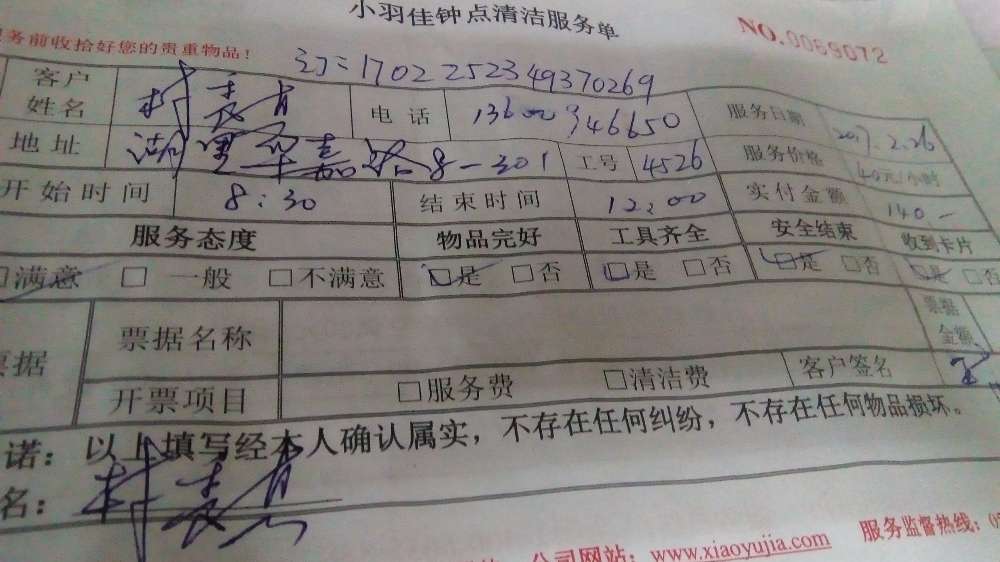 小羽佳钟点清洁服务单
NO.0059072
务前收拾好您的贵重物品！
订：1702252349370269
客户姓名 电话 13600946650 服务日期 2017.2.26
地址 8-301 工号 4526 服务价格 40元/小时
开始时间 8:30 结束时间 12:00 实付金额 140-
服务态度 物品完好 工具齐全 安全结束 收到卡片
□满意 □一般 □不满意 □是 □否 □是 □否 □是 □否 □是 □否
票据 票据名称 票据金额
开票项目 □服务费 □清洁费 客户签名
诺：以上填写经本人确认属实，不存在任何纠纷，不存在任何物品损坏。
名：
公司网站：www.xiaoyujia.com 服务监督热线：